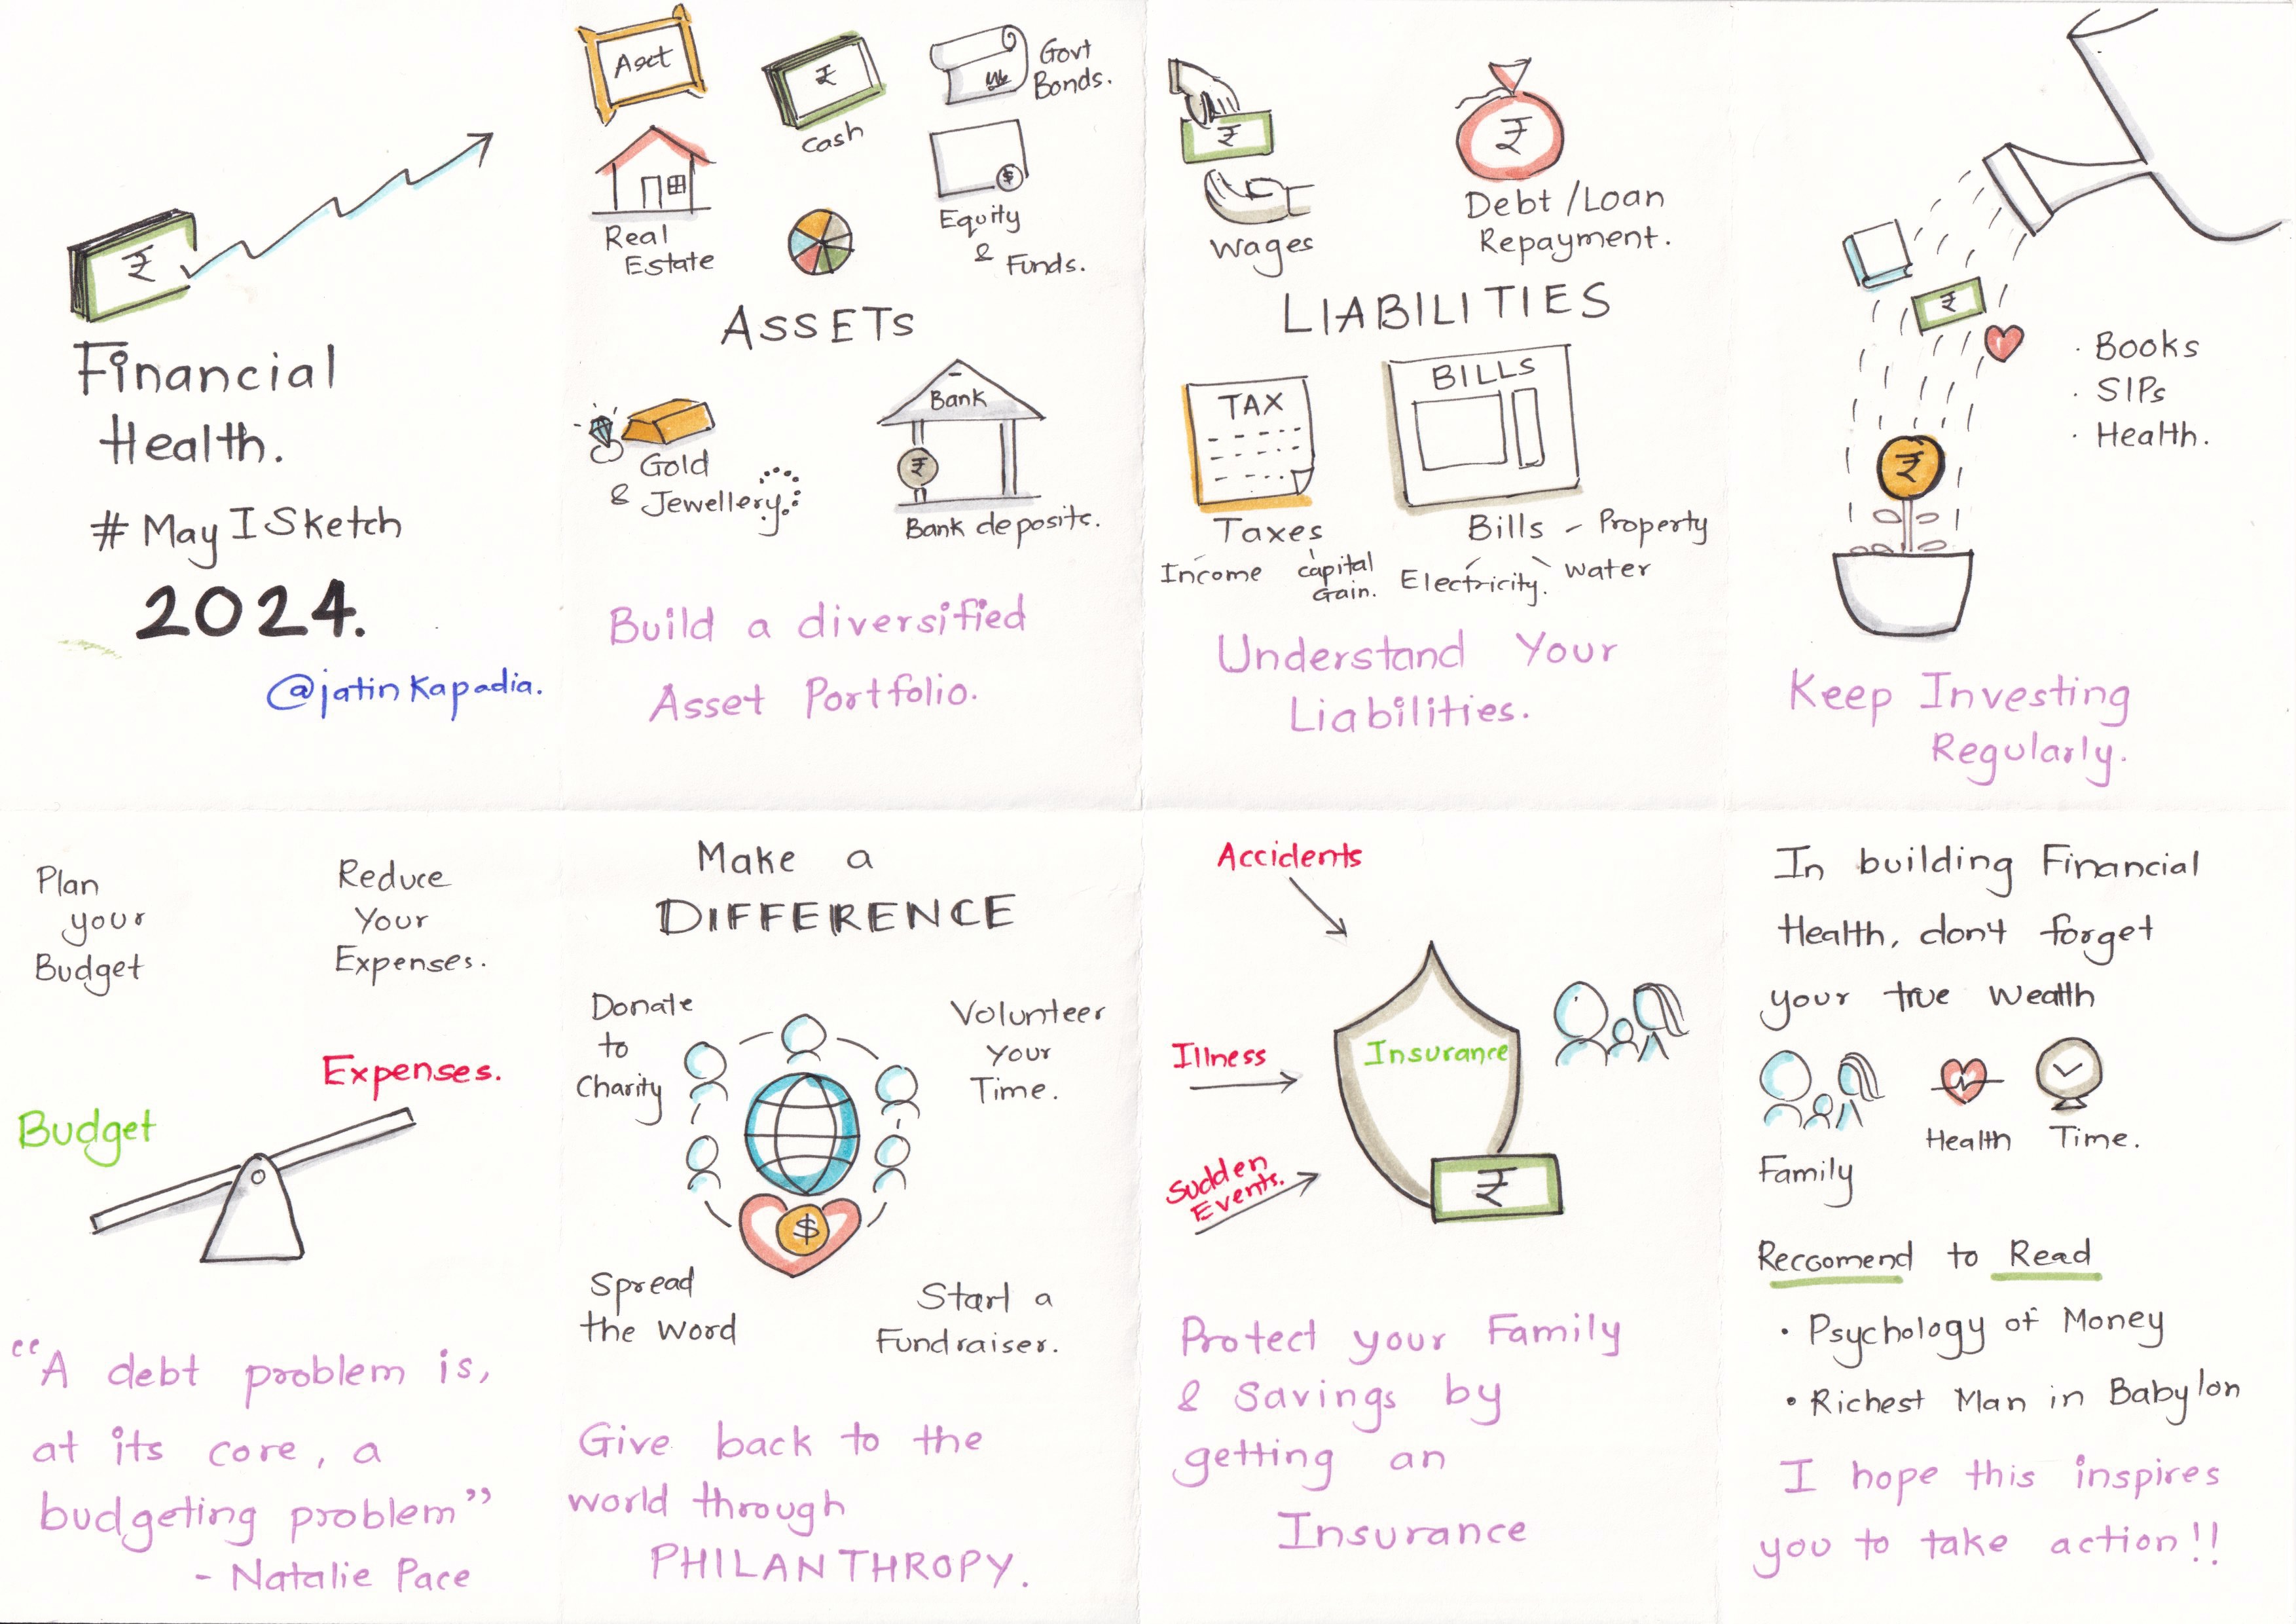 ₹
Financial
Health.
# May I Sketch
2024.
@jatinkapadia.
Aset
₹
Cash
Govt
Bonds.
Real
Estate
$
Equity
& Funds.
ASSETS
Gold
& Jewellery.
Bank
₹
Bank deposits.
Build a diversified
Asset Portfolio.
₹
Wages
₹
Debt/Loan
Repayment.
LIABILITIES
TAX
Taxes
Income
capital
Gain.
BILLS
Bills - Property
Electricity.
Water
Understand Your
Liabilities.
₹
₹
· Books
· SIPs
· Health.
Keep Investing
Regularly.
Plan
your
Budget
Reduce
Your
Expenses.
Budget
Expenses.
"A debt problem is,
at its core, a
budgeting problem"
- Natalie Pace
Make a
DIFFERENCE
Donate
to
Charity
Volunteer
Your
Time.
$
Spread
the Word
Start a
Fundraiser.
Give back to the
world through
PHILANTHROPY.
Accidents
Illness
Sudden
Events.
Insurance
₹
Protect your Family
& Savings by
getting an
Insurance
In building Financial
Health, don't forget
your true Wealth
Family
Health
Time.
Reccomend to Read
• Psychology of Money
• Richest Man in Babylon
I hope this inspires
you to take action!!